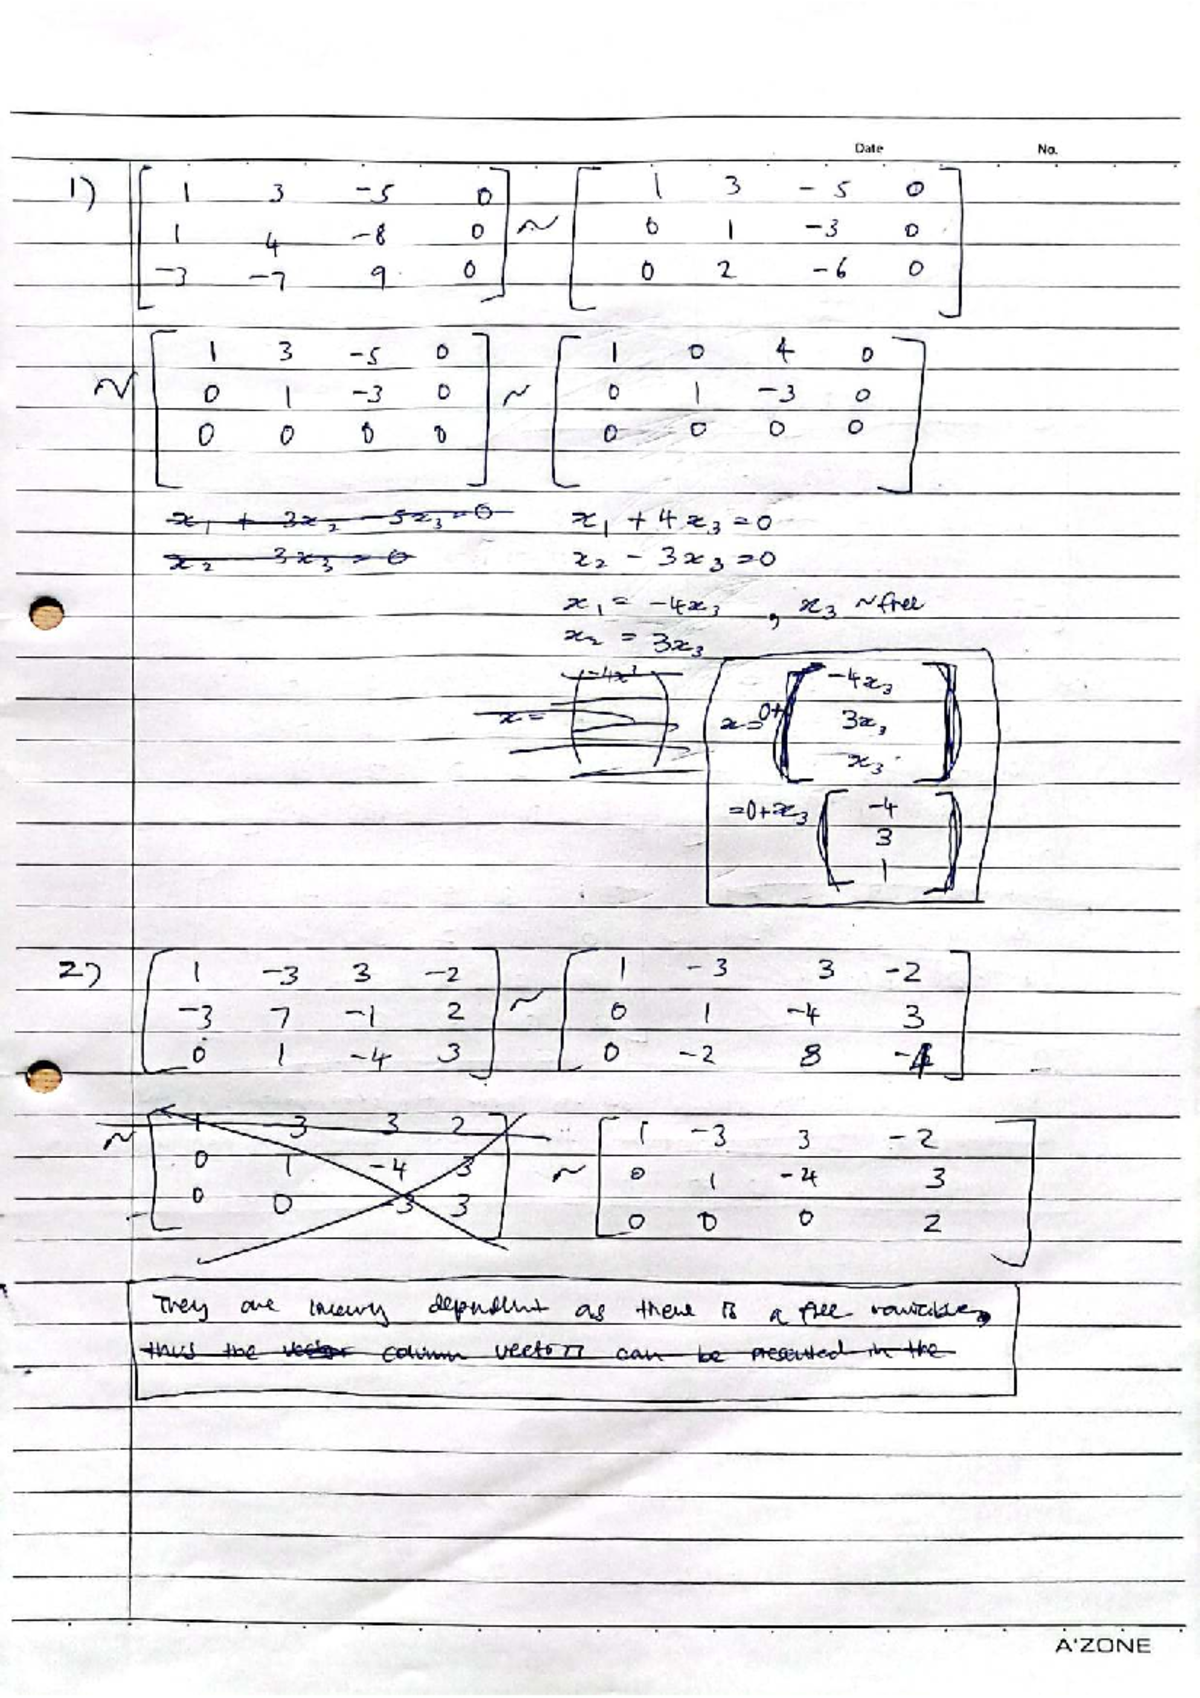 Date No.
1) [ 1 3 -5 0 ] ~ [ 1 3 -5 0 ]
[ 1 4 -8 0 ] [ 0 1 -3 0 ]
[ -3 -7 9 0 ] [ 0 2 -6 0 ]
~ [ 1 3 -5 0 ] ~ [ 1 0 4 0 ]
[ 0 1 -3 0 ] [ 0 1 -3 0 ]
[ 0 0 0 0 ] [ 0 0 0 0 ]
x₁ + 3x₂ - 5x₃ = 0 x₁ + 4x₃ = 0
x₂ 3x₃ = 0 x₂ - 3x₃ = 0
x₁ = -4x₃ , x₃ ~ free
x₂ = 3x₃
x = x = 0+ [ -4x₃
3x₃
x₃ ]
= 0 + x₃ [ -4
3
1 ]
2) [ 1 -3 3 -2 ] ~ [ 1 -3 3 -2 ]
[ -3 7 -1 2 ] [ 0 1 -4 3 ]
[ 0 1 -4 3 ] [ 0 -2 8 -4 ]
~ [ 1 3 3 2 ] ~ [ 1 -3 3 -2 ]
[ 0 1 -4 3 ] [ 0 1 -4 3 ]
[ 0 0 -3 3 ] [ 0 0 0 2 ]
They are linearly dependent as there is a free variable,
thus the vector column vectors can be presented in the
A'ZONE